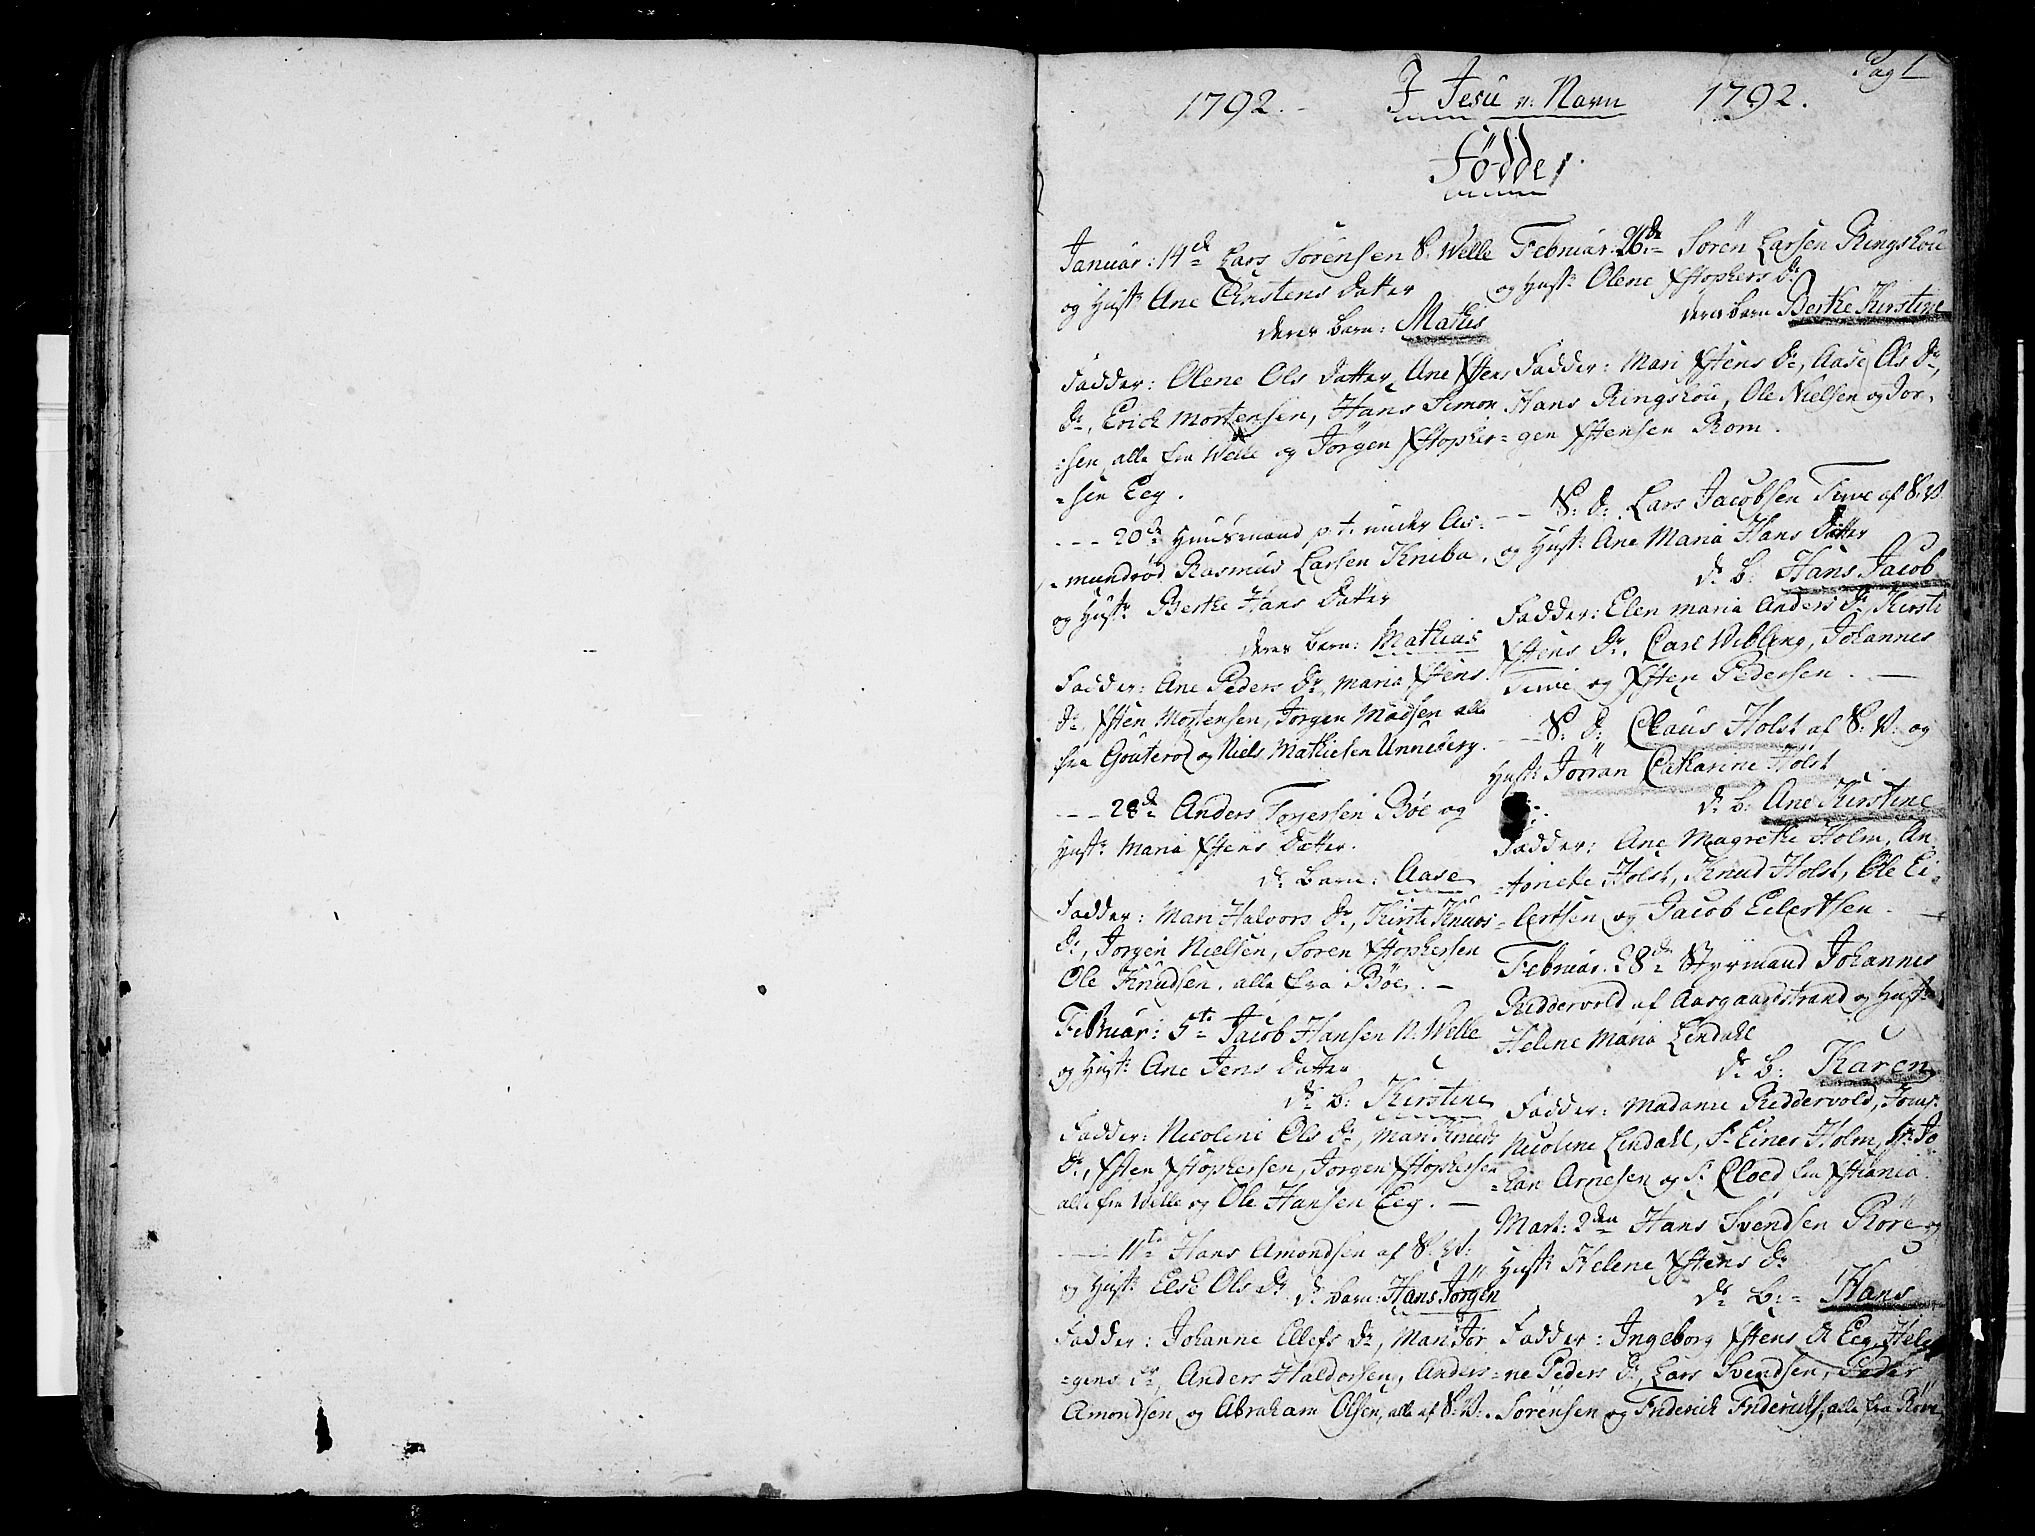 Pag 1
1792. I Jesu n: Navn 1792.
Födde,
Januar: 14de Lars Sörensen S. Welle
og Hustr Ane Christens Datter
deres barn: Mathis
Fadder: Olene Ols Datter, Une Xstens
Dr, Erich Mortensen, Hans Simon
=sen alle fra Welle og Jörgen Xstopher=
=sen Eeg.
--- 20de Huusmand p. t. under As=
=mundröd Rasmus Larsen Kniba
og Hustr Berthe Hans Datter
deres barn: Mathias
Fadder: Ane Peders Dr, Maria Xstens
Dr, Xsten Mortensen, Jörgen Madsen alle
fra Gouteröd og Niels Mathiesen Unneberg.
--- 28de Anders Torgersen Böe og
Hustr Maria Xstens Datter.
Ds Barn: Aase
Fadder: Mari Halvors Dr, Kirsti Knuds
Dr, Jörgen Nielsen, Sören Xstophersen
Ole Knudsen, alle fra Böe. —
Februar: 5te Jacob Hansen N. Welle
og Hustr Ane Jens Datter
Ds b: Kirstine
Fadder: Nicoline Ols Dr, Mari Knuds
Dr, Xsten Xstophersen, Jörgen Xstophersen
alle fra Welle og Ole Hansen Eeg. —
--- 11te Hans Amondsen af S. V:
og Hustr Else Ols Dr
Ds barn: Hans Jörgen
Fadder: Johanne Ellefs Dr, Mari Jör
=gens Dr, Anders Haldorsen, Anders
Amondsen og Abraham Olsen, alle af S: V:.
Februar: 26de Sören Larsen Ringskou
og Hustr Olene Xstophers Dr
deres barn Berthe Kirstine
Fadder: Mari Xstens Dr, Aase Ols Dr,
Hans Ringskou, Ole Nielsen og Jör,
=gen Xstensen Rom.
--- S: D: Lars Jacobsen Tuve af S: V.
og Hustr Ane Maria Hans Datter
Ds b: Hans Jacob
Fadder: Elen Maria Anders Dr, Kirsti
Xstens Dr, Carl Wibling, Johannes
Tuve og Xsten Pedersen. —
--- S: D: Claus Holst af S: V: og
Hustr Jörran Catharine Holst
Ds b: Ane Kirstine
Fadder: Ane Magrethe Holm, An,
=toniche Holst, Knud Holst, Ole Ei,
=lertsen og Jacob Eilertsen. —
Februar: 28de Styrmand Johannes
Riddervold af Aasgaardstrand og Hustr
Helene Maria Lindahl
Ds b: Karen
Fadder: Madame Riddervold, Jomfr
Nicoline Lindahl, Sr Einer Holm, Sr Jo
=han Arnesen og Sr Cloed fra Xstiania.
Mart: 2den Hans Svendsen Röre og
Hustr Helene Xstens Dr
Ds b: Hans
Fadder: Ingeborg Xstens Dr Eeg, Hele
=ne Peders Dr, Lars Svendsen, Peder
Sörensen og Friderich Fridericks, alle fra Röre